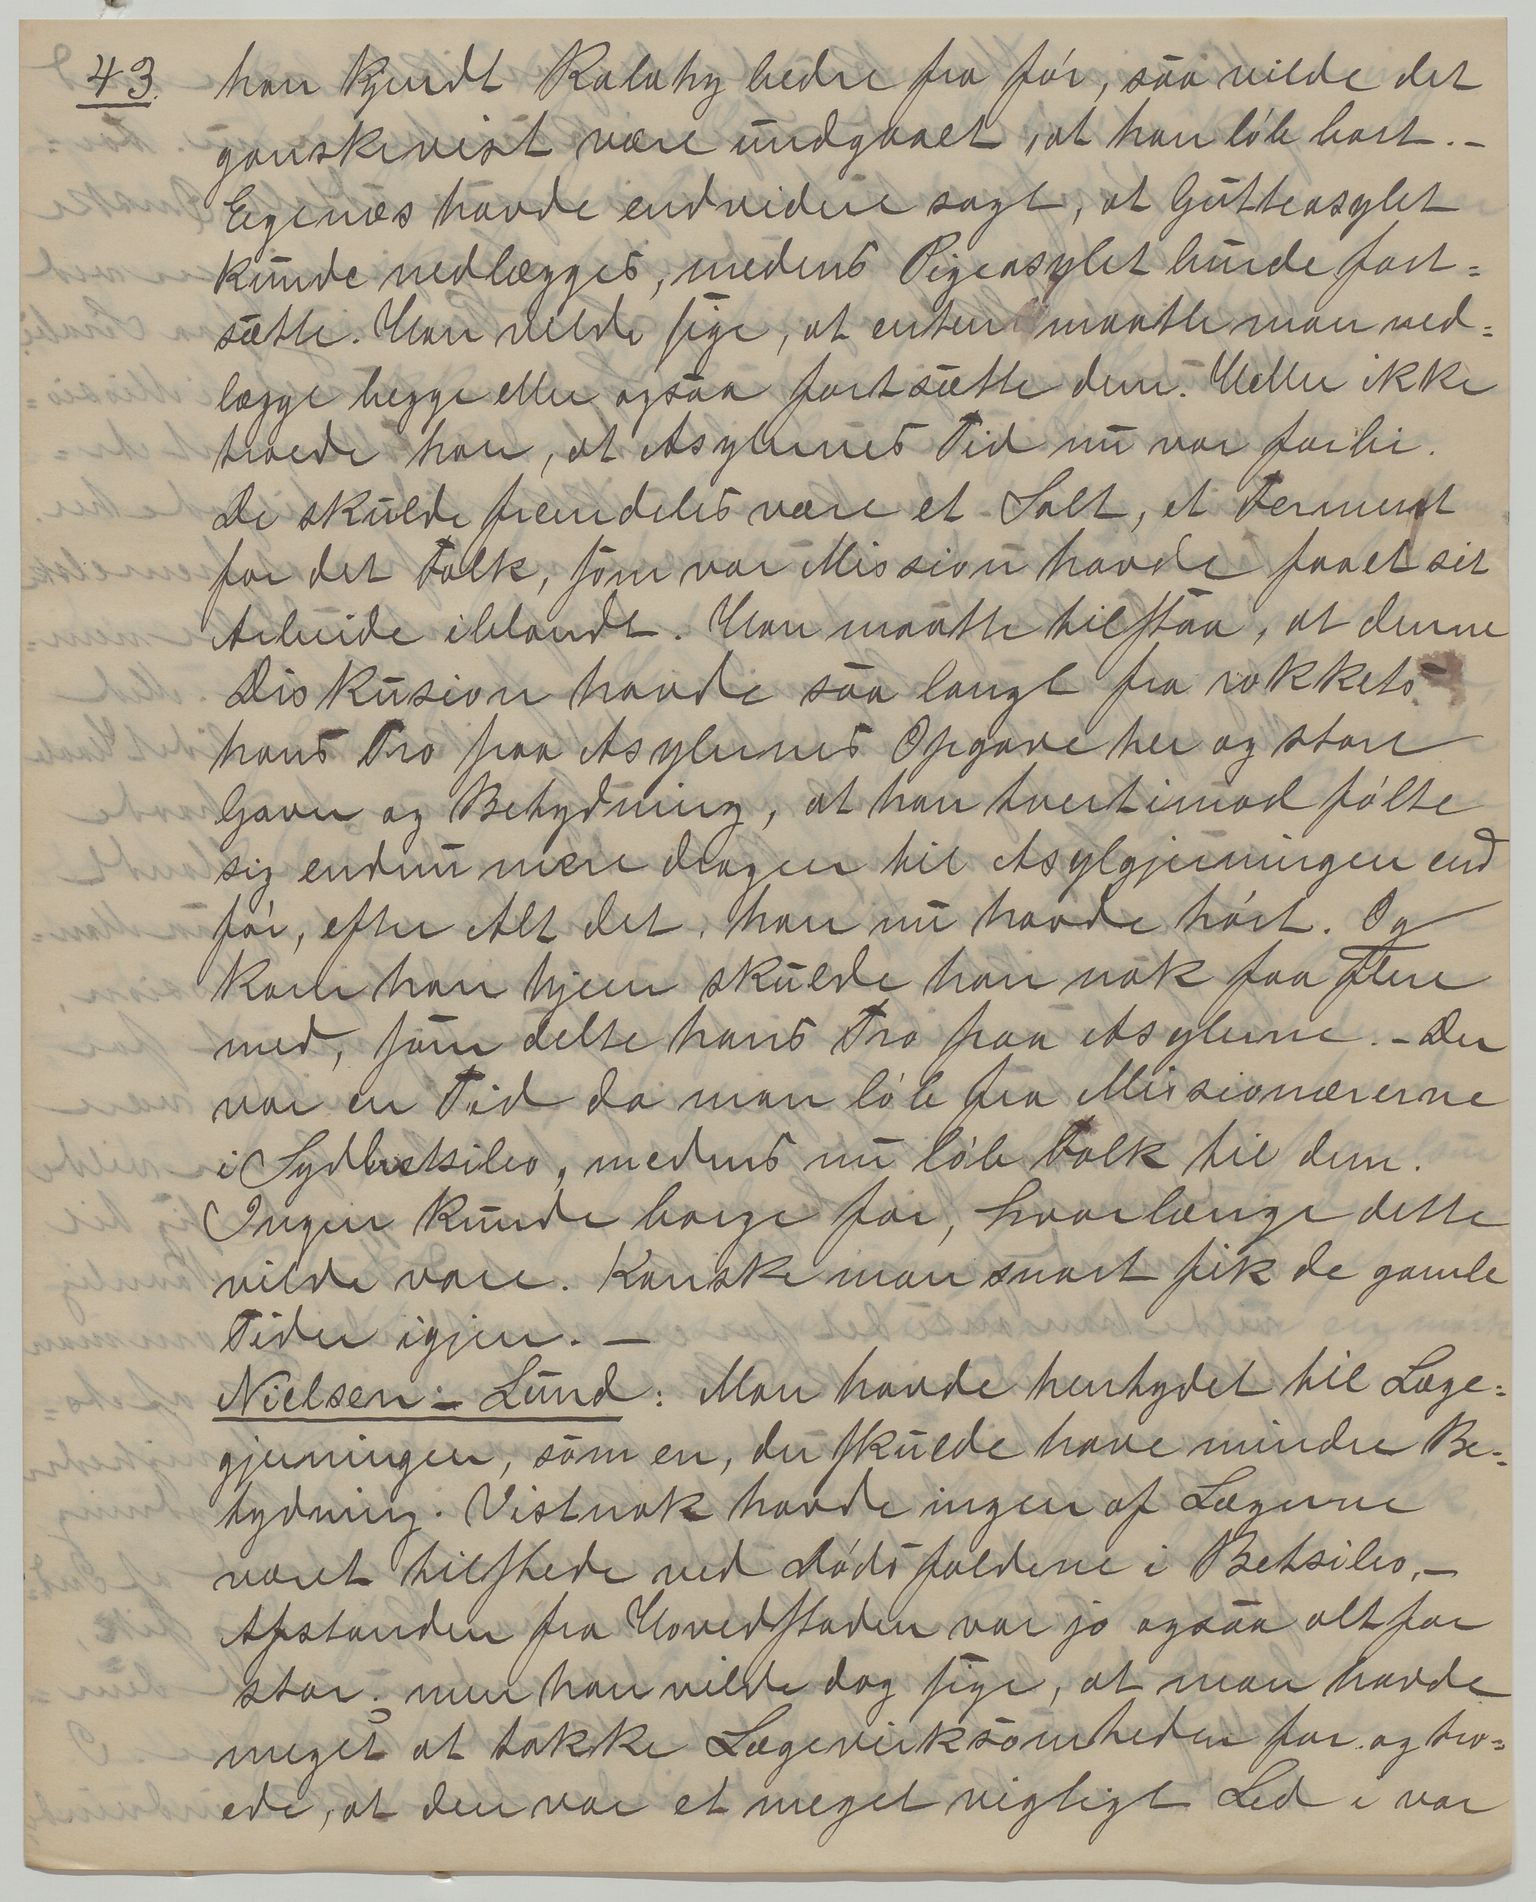 43. han kjendt Ralahy bedre fra før, saa vilde det
ganskevist være undgaaet, at han løb bort. –
Egenæs havde endvidere sagt, at Gutteasylet
kunde nedlægges, medens Pigeasylet burde fort=
sætte. Han vilde sige, at enten maatte man ned=
lægge begge eller ogsaa fortsætte dem. Heller ikke
troede han, at Asylernes Tid nu var forbi.
De skulde fremdeles være et Salt, et Ferment
for det Folk, som vor Mission havde faaet sit
Arbeide iblandt. Han maatte tilstaa, at denne
Diskusion havde saa langt fra rokket
hans Tro paa Asylernes Opgave her og store
Gavn og Betydning, at han tvertimod følte
sig endnu mere dragen til Asylgjerningen end
før, efter Alt det, han nu havde hørt. Og
kom han hjem skulde han nok faa flere
med, som delte hans Tro paa Asylerne. – Der
var en Tid da man løb fra Missionærerne
i Sydbetsileo, medens nu løb Folk til dem.
Ingen kunde borge for, hvorlænge dette
vilde vare. Kanske man snart fik de gamle
Tider igjen. –
Nielsen-Lund: Man havde hentydet til Læge=
gjerningen, som en, der skulde have mindre Be=
tydning. Vistnok havde ingen af Lægerne
været tilstede ved Dødsfaldene i Betsileo, –
Afstanden fra Hovedstaden var jo ogsaa altfor
stor; men han vilde dog sige, at man havde
meget at takke Lægevirksomheden for og tro=
ede, at den var et meget vigtigt Led i vor